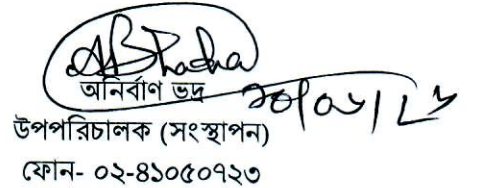 অনির্বাণ ভদ্র
উপপরিচালক (সংস্থাপন)
ফোন- ০২-৪১০৫০৭২৩